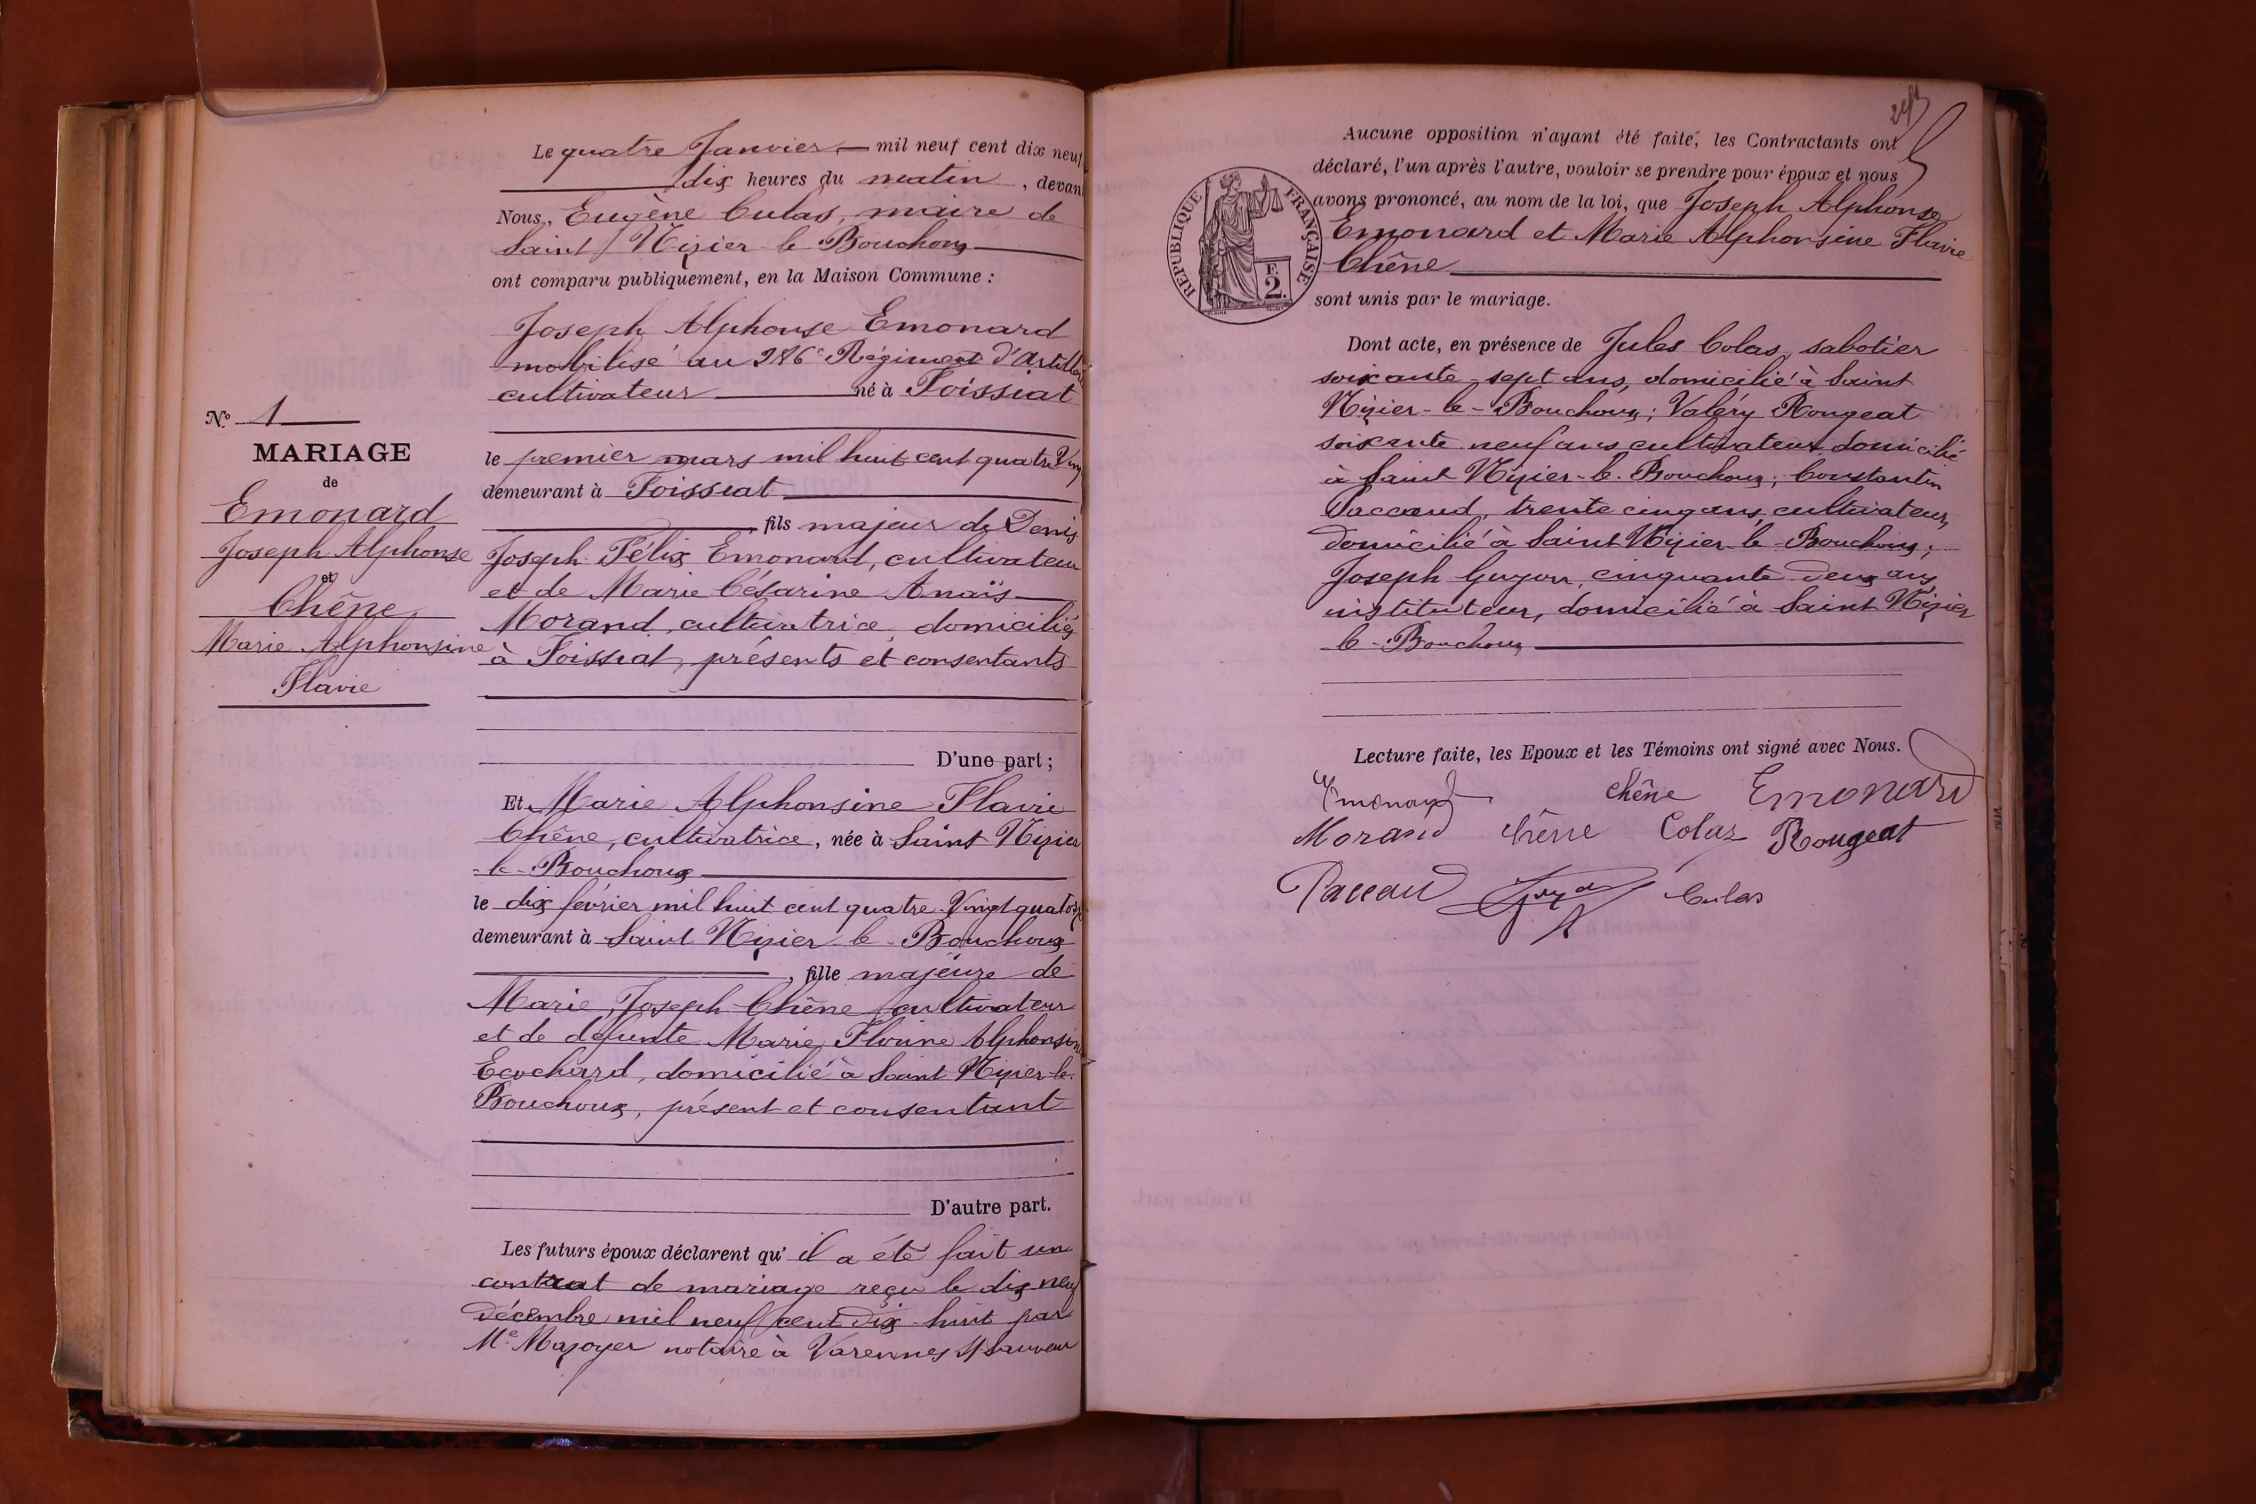 Le quatre Janvier mil neuf cent dix neuf
dix heures du matin, devan
Nous, Eugène Culas, maire de
Saint Nizier le Bouchoux
ont comparu publiquement, en la Maison Commune :
Joseph Alphonse Emonard
mobilisé au 286e Régiment d'Artillerie
cultivateur né à Foissiat
No 1
MARIAGE
de
Emonard
Joseph Alphonse
et
Chêne
Marie Alphonsine
Flavie
le premier mars mil huit cent quatre Vingt
demeurant à Foissiat
, fils majeur de Denis
Joseph Félix Emonard, cultivateur
et de Marie Césarine Anaïs
Morand, cultivatrice, domiciliés
à Foissiat, présents et consentants
D'une part ;
Et Marie Alphonsine Flavie
Chêne, cultivatrice, née à Saint Nizier
le Bouchoux
le dix février mil huit cent quatre Vingt quatorze
demeurant à Saint Nizier le Bouchoux
, fille majeure de
Marie Joseph Chêne cultivateur
et de défunte Marie Florine Alphonsine
Ecochard, domicilié à Saint Nizier-le-
Bouchoux, présent et consentant
D'autre part.
Les futurs époux déclarent qu' il a été fait un
contrat de mariage reçu le dix neuf
décembre mil neuf cent dix huit par
Me Mazoyer notaire à Varennes St Sauveur
Aucune opposition n'ayant été faite, les Contractants ont
déclaré, l'un après l'autre, vouloir se prendre pour époux et nous
avons prononcé, au nom de la loi, que Joseph Alphonse
Emonard et Marie Alphonsine Flavie
Chêne
RÉPUBLIQUE FRANÇAISE
F.
2.
sont unis par le mariage.
Dont acte, en présence de Jules Colas, sabotier
soixante-sept ans, domicilié à Saint
Nizier-le-Bouchoux ; Valéry Rougeat
soixante neuf ans cultivateur domicilié
à Saint Nizier-le-Bouchoux ; Constantin
Paccaud, trente cinq ans, cultivateur,
domicilié à Saint Nizier le Bouchoux ;
Joseph Guyon, cinquante deux ans,
instituteur, domicilié à Saint Nizier
le-Bouchoux
Lecture faite, les Epoux et les Témoins ont signé avec Nous.
Emonard chêne Emonard
Morand chêne Colas Rougeat
Paccaud Guyon Culas